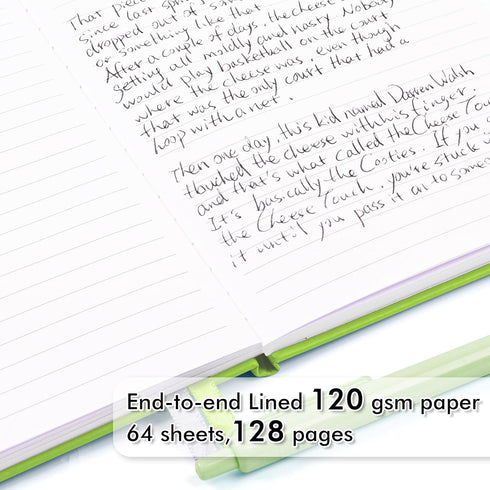 That piece
since last spr
dropped out of some
or something like that
After a couple of days, the cheese
getting all moldly and nasty. Nobody
would play basketball on the court
where the cheese was, even though
that was the only court that had a
hoop with a net.
Then one day, this kid named Darren Walsh
touched the cheese with his finger,
and that's what called the Cheese Touch
It's basically the Cooties. If you g
the Cheese Touch, you're stuck
it until you pass it on to someo
End-to-end Lined 120 gsm paper
64 sheets,128 pages